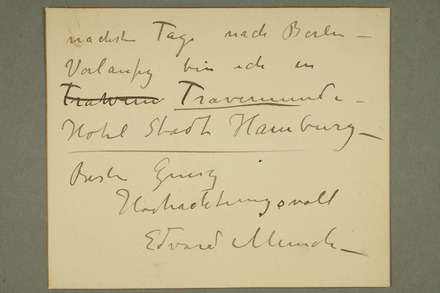 nächsten Tage nach Berlin –
Vorläufig bin ich in
Travemünde –
Hotel Stadt Hamburg –
Besten Gruss
Hochachtungsvoll
Edvard Munch –